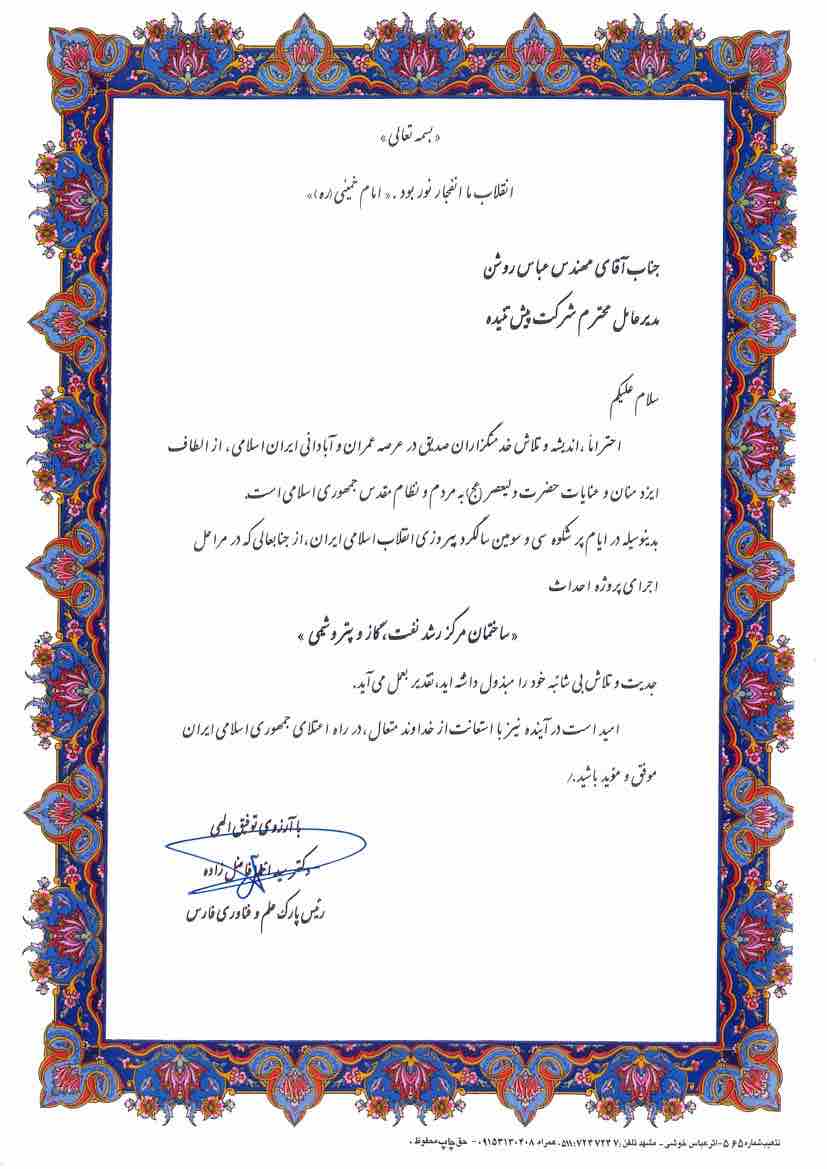 «بسمه تعالی»
انقلاب ما انفجار نور بود. «امام خمینی (ره)»
جناب آقای مهندس عباس روشن
مدیرعامل محترم شرکت پیش تنیده
سلام علیکم
احتراماً، اندیشه و تلاش خدمتگزاران صدیق در عرصه عمران و آبادانی ایران اسلامی، از الطاف
ایزد منان و عنایات حضرت ولیعصر (عج) به مردم و نظام مقدس جمهوری اسلامی است.
بدینوسیله در ایام پر شکوه سی و سومین سالگرد پیروزی انقلاب اسلامی ایران، از جنابعالی که در مراحل
اجرای پروژه احداث
«ساختمان مرکز رشد نفت، گاز و پتروشیمی»
جدیت و تلاش بی شائبه خود را مبذول داشته اید، تقدیر بعمل می آید.
امید است در آینده نیز با استعانت از خداوند متعال، در راه اعتلای جمهوری اسلامی ایران
موفق و مؤید باشید./
با آرزوی توفیق الهی
دکتر سید فاضل زاده
رئیس پارک علم و فناوری فارس
تذهیب شماره ۵۶۵-اثر عباس خوشی- مشهد تلفن: ۷۲۳۷۲۳۷-۵۱۱. همراه ۰۹۱۵۳۱۳۰۲۰۸- حق چاپ محفوظ.